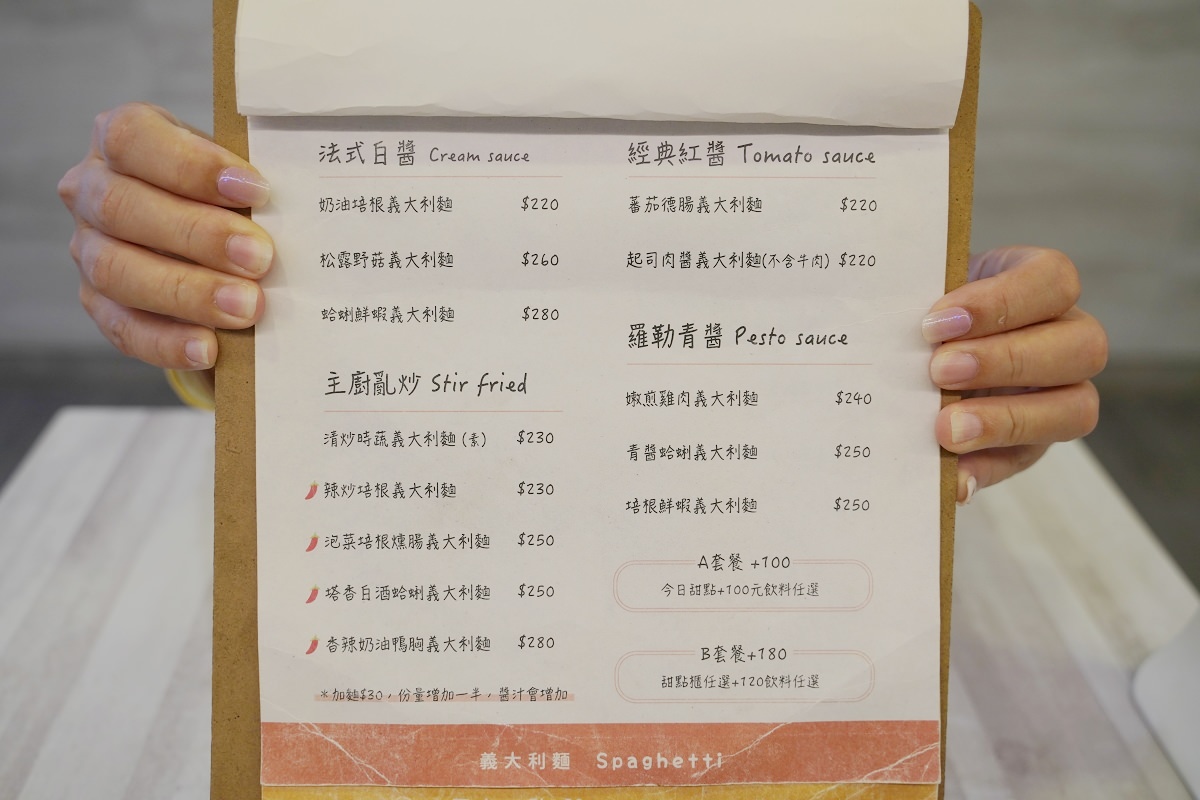 法式白醬 Cream sauce
奶油培根義大利麵 $220
松露野菇義大利麵 $260
蛤蜊鮮蝦義大利麵 $280
主廚亂炒 Stir fried
清炒時蔬義大利麵(素) $230
辣炒培根義大利麵 $230
泡菜培根燻腸義大利麵 $250
塔香白酒蛤蜊義大利麵 $250
香辣奶油鴨胸義大利麵 $280
*加麵$30，份量增加一半，醬汁會增加
經典紅醬 Tomato sauce
蕃茄德腸義大利麵 $220
起司肉醬義大利麵(不含牛肉) $220
羅勒青醬 Pesto sauce
嫩煎雞肉義大利麵 $240
青醬蛤蜊義大利麵 $250
培根鮮蝦義大利麵 $250
A套餐 +100
今日甜點+100元飲料任選
B套餐+180
甜點櫃任選+120飲料任選
義大利麵 Spaghetti